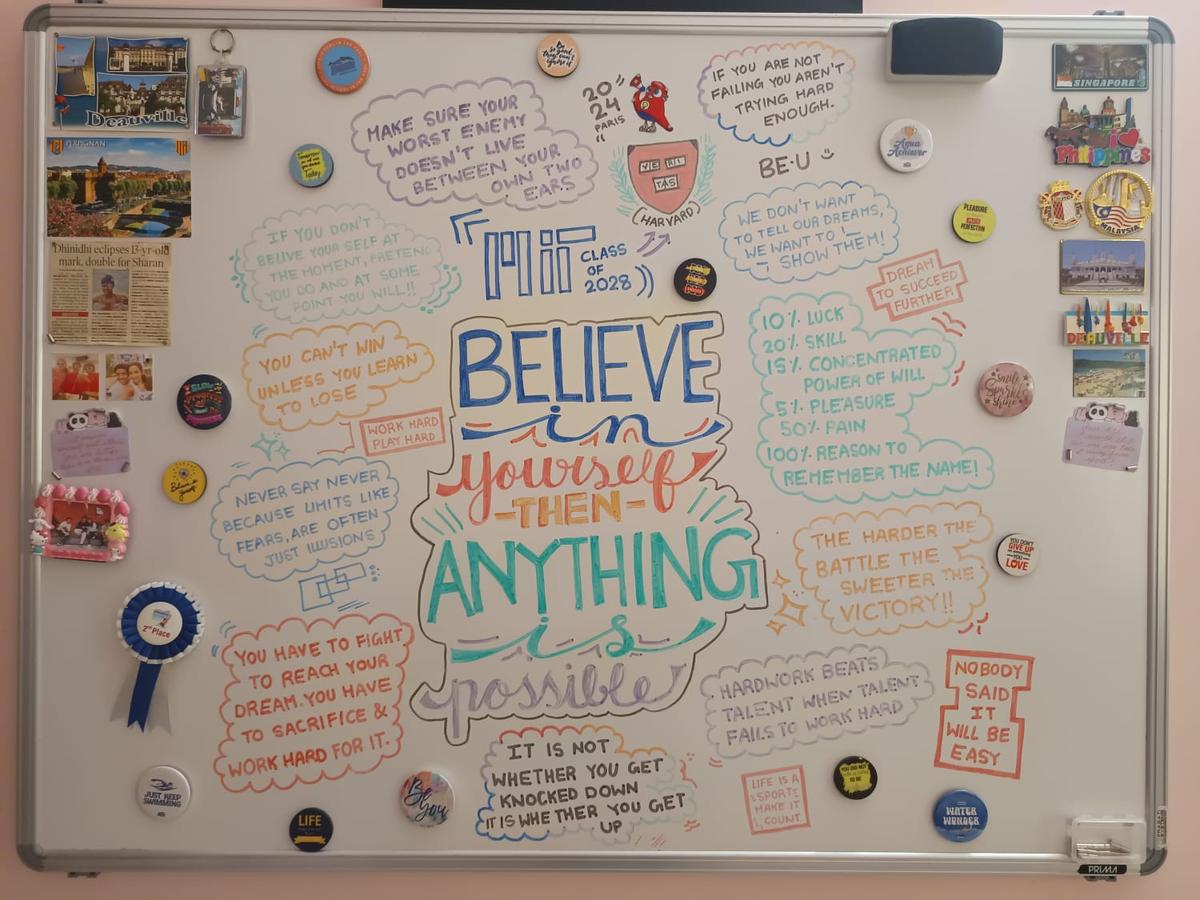 Deauville
PERPIGNAN
Dhinidhi eclipses 13-yr-old
mark, double for Sharan
2nd Place
JUST KEEP
SWIMMING
LIFE
Be
You
MAKE SURE YOUR
WORST ENEMY
DOESN'T LIVE
BETWEEN YOUR
OWN TWO
EARS
20"
24
PARIS
"
VE RI
TAS
(HARVARD)
IF YOU ARE NOT
FAILING YOU AREN'T
TRYING HARD
ENOUGH.
BE·U
Aqua
Achiever
SINGAPORE
I
Philippines
MALAYSIA
DEAUVILLE
IF YOU DON'T
BELIVE YOUR SELF AT
THE MOMENT, PRETEND
YOU DO AND AT SOME
POINT YOU WILL!!
MIT CLASS
OF
2028
WE DON'T WANT
TO TELL OUR DREAMS,
WE WANT TO
SHOW THEM!
PLEASURE
PERFECTION
DREAM
TO SUCCEED
FURTHER
YOU CAN'T WIN
UNLESS YOU LEARN
TO LOSE
WORK HARD
PLAY HARD
BELIEVE
in
yourself
-THEN-
ANYTHING
is
possible
10% LUCK
20% SKILL
15% CONCENTRATED
POWER OF WILL
5% PLEASURE
50% PAIN
100% REASON TO
REMEMBER THE NAME!
Smile
Sparkle
Shine
NEVER SAY NEVER
BECAUSE LIMITS LIKE
FEARS, ARE OFTEN
JUST ILLUSIONS
THE HARDER THE
BATTLE THE
SWEETER THE
VICTORY!!
YOU DON'T
GIVE UP
YOU
LOVE
YOU HAVE TO FIGHT
TO REACH YOUR
DREAM. YOU HAVE
TO SACRIFICE &
WORK HARD FOR IT.
HARDWORK BEATS
TALENT WHEN TALENT
FAILS TO WORK HARD
NOBODY
SAID
IT
WILL BE
EASY
IT IS NOT
WHETHER YOU GET
KNOCKED DOWN
IT IS WHETHER YOU GET
UP
LIFE IS A
SPORT
MAKE IT
COUNT
WATER
WONDER
PRIMA